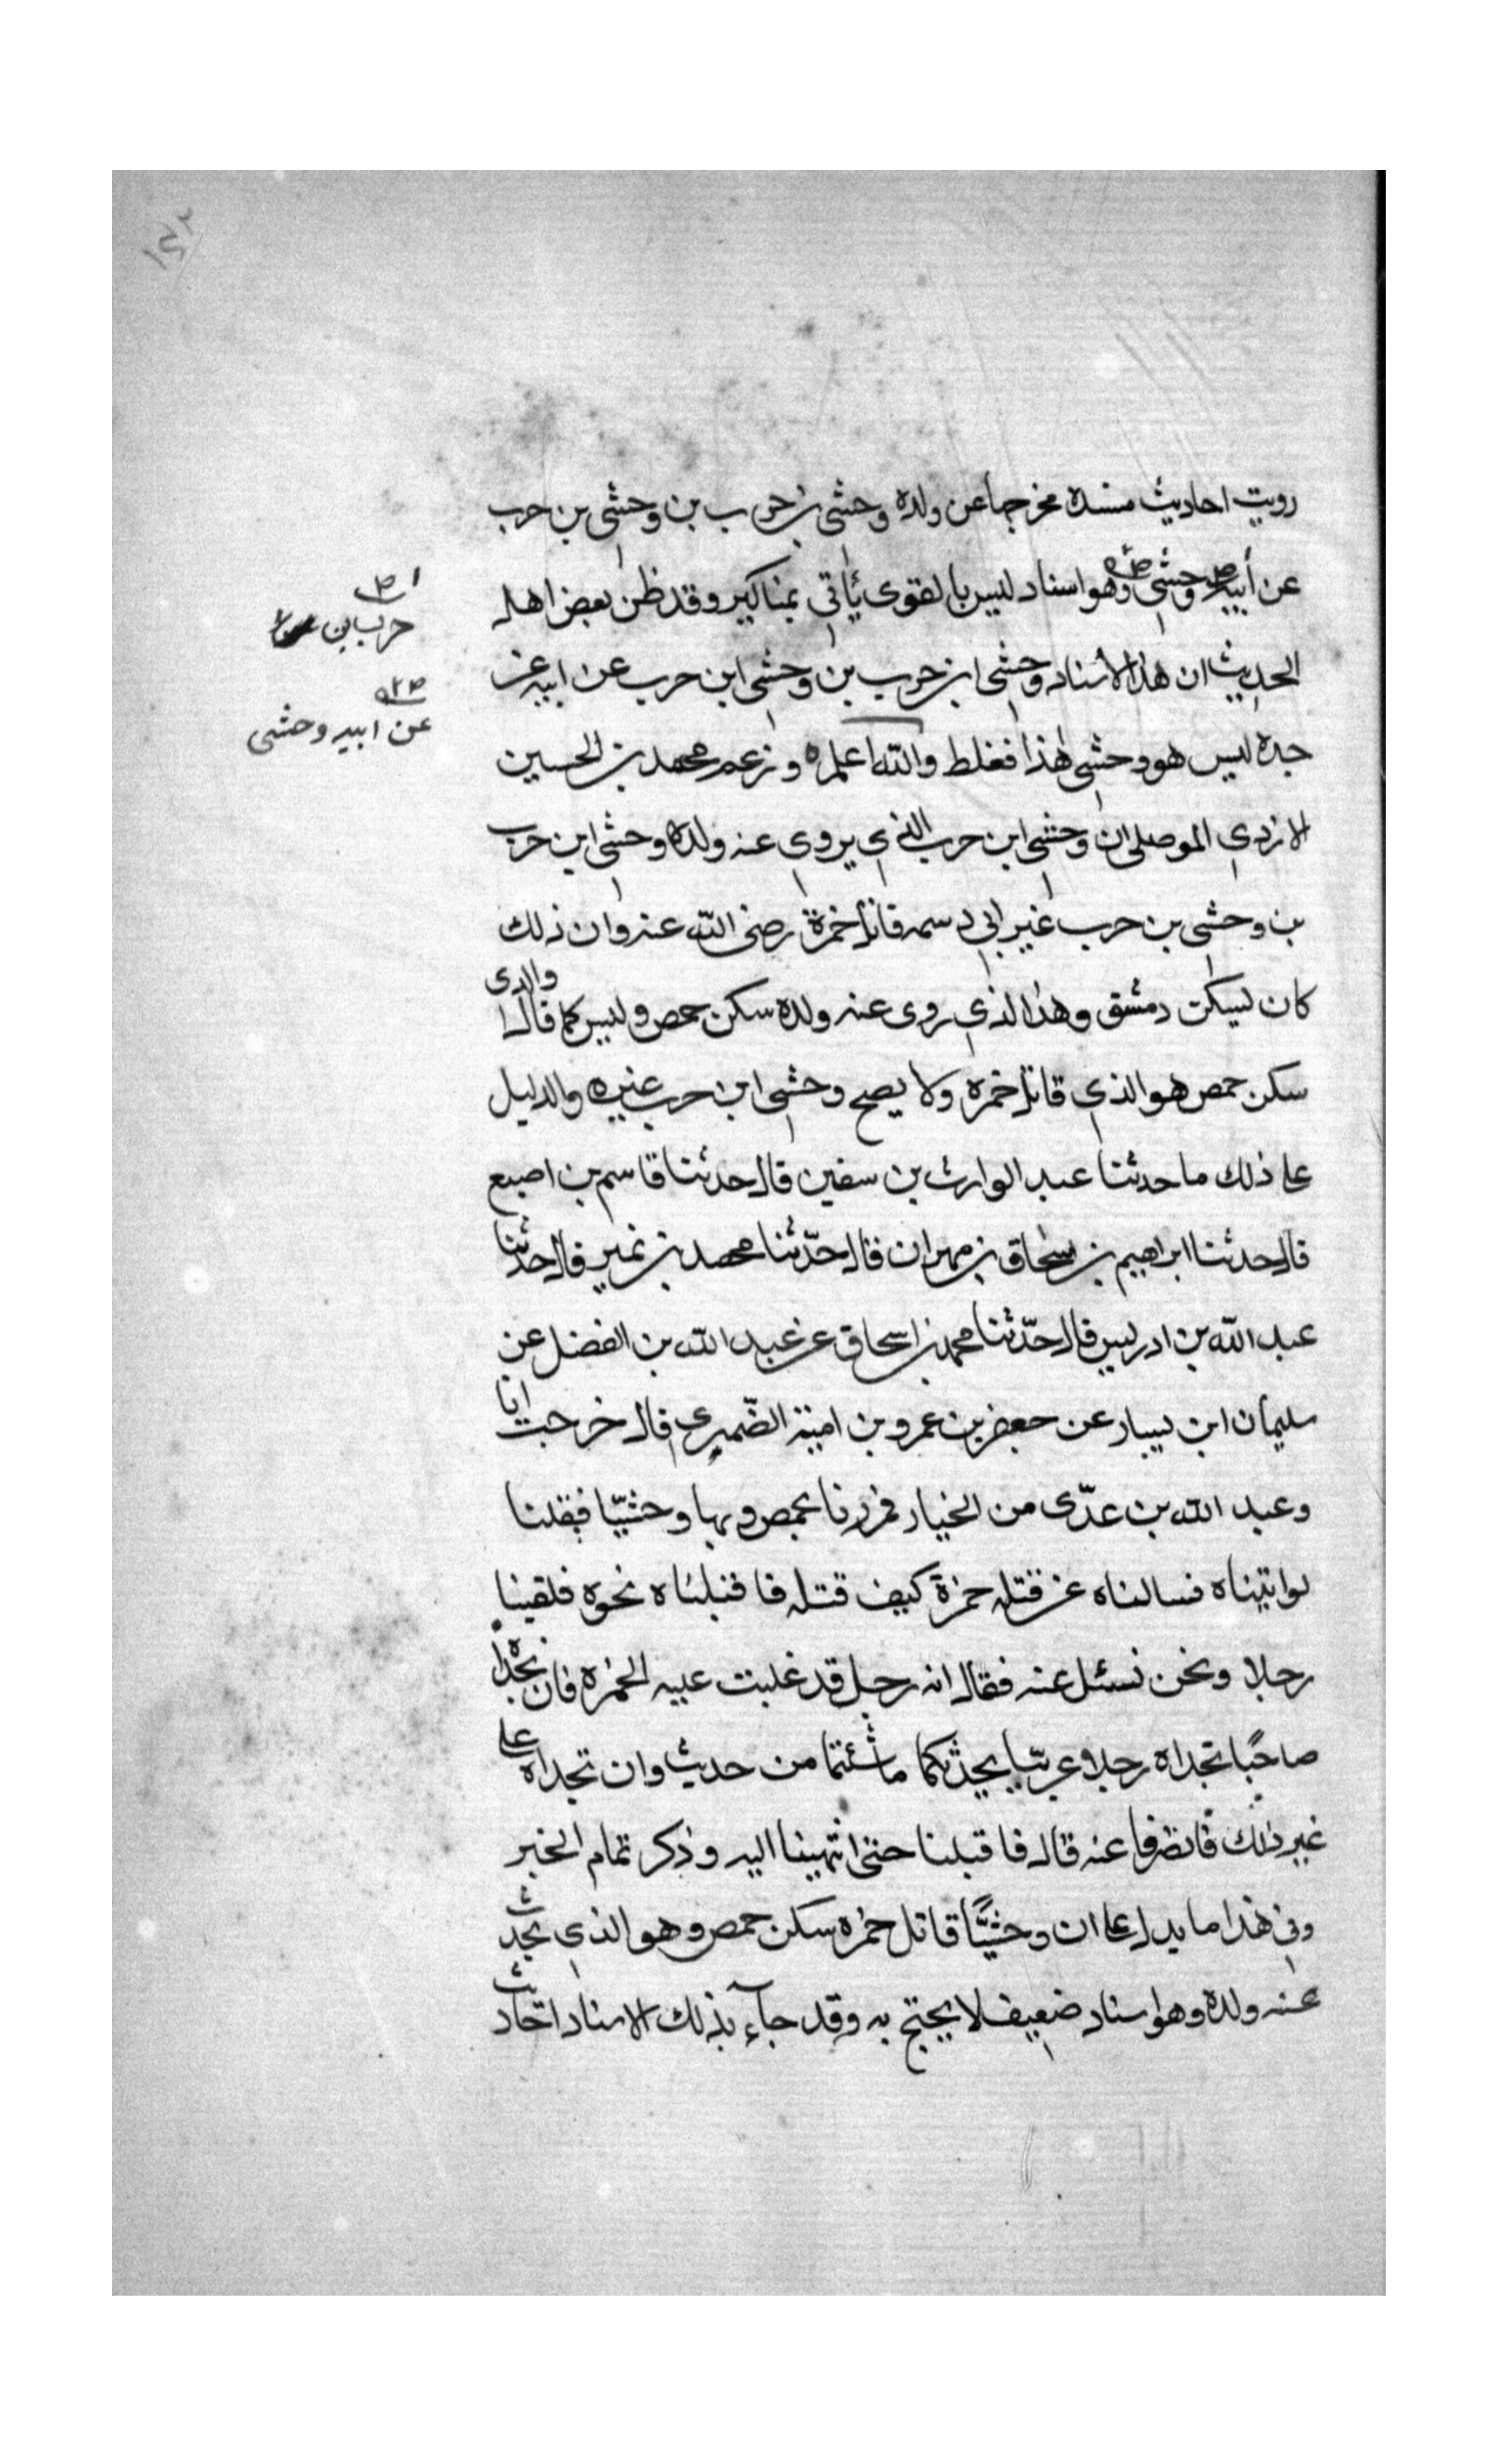 ١٤٢
رويت احاديث مسنده مخرجها عن ولده وحشي بن حرب بن وحشي بن حرب
عن أبيه وحشي وهو اسناد ليس بالقوى يأتي بمناكير وقد ظن بعض اهل
الحديث ان هذا الاسناد وحشي ابن حرب بن وحشي ابن حرب عن ابيه عن
جده ليس هو وحشي هذا فغلط والله اعلم وزعم محمد بن الحسين
الازدي الموصلي ان وحشي ابن حرب الذي يروي عنه ولده وحشي ابن حرب
بن وحشي بن حرب غير ابي دسمه قاتل حمزة رضى الله عنه وان ذلك
كان ليسكن دمشق وهذا الذي روى عنه ولده سكن حمص وليس كما قال والدى
سكن حمص هو الذي قاتل حمزه ولا يصح وحشي ابن حرب غيره والدليل
على ذلك ما حدثنا عبد الوارث بن سفين قال حدثنا قاسم بن اصبع
قال حدثنا ابراهيم بن اسحاق بن مهران قال حدّثنا محمد بن نمير قال حدثنا
عبد الله بن ادريس قال حدّثنا محمد بن اسحاق عن عبد الله بن الفضل عن
سليمان ابن يسار عن جعفر بن عمرو بن امية الضّميري قال خرجت انا
وعبد الله بن عدّى من الخيار فمررنا بحمص وبها وحشيّا فقلنا
لو اتيناه فسالناه عن قتله حمزة كيف قتله فاقبلناه نحوه فلقينا
رجلا ونحن نسئل عنه فقال انه رجل قد غلبت عليه الخمره فان تجداه
صاحيًا تجداه رجلا عربيّا يحدثكما ما شئتما من حديث وان تجداه على
غير ذلك فانصرفا عنه قال فاقبلنا حتى انتهينا اليه وذكر تمام الخبر
وفي هذا ما يدل على ان وحشيًّا قاتل حمزه سكن حمص وهو الذي يحدث
عنه ولده وهو اسناد ضعيف لا يحتج به وقد جاء بذلك الاسناد احاديث
حرب بن
عن ابيه وحشى